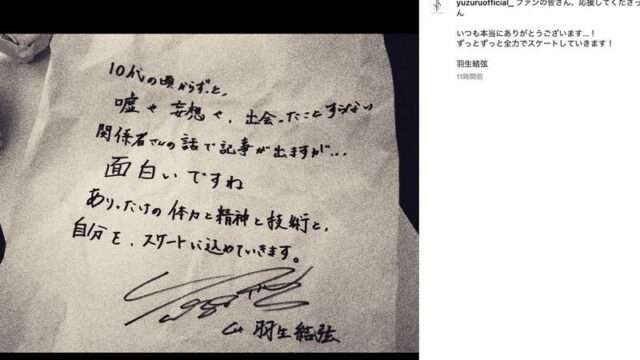 10代の頃からずっと、
嘘や妄想や、出会ったことすらない
関係者さんの話で記事が出ますが...
面白いですね
ありったけの体力と精神と技術と、
自分を、スケートに込めていきます。
羽生結弦
yuzuruofficial_ ファンの皆さん、応援してくださっ
ん
いつも本当にありがとうございます...!
ずっとずっと全力でスケートしていきます!
羽生結弦
11時間前